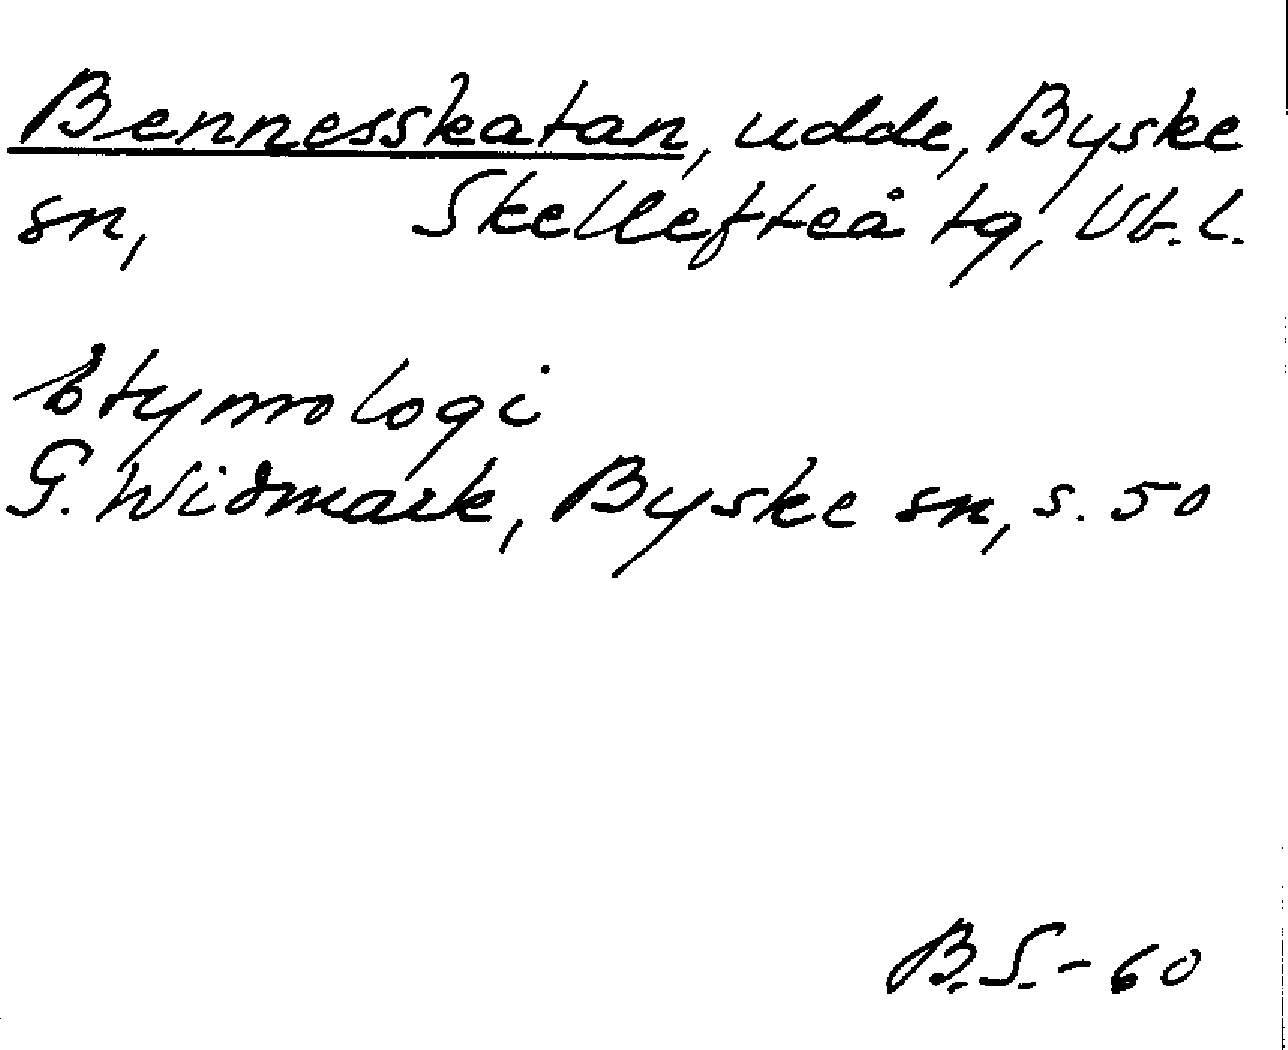 Bennesskatan, udde, Byske
sn, Skellefteå tg, Vb.l.
Etymologi
G. Widmark, Byske sn, s. 50
B.S.-60